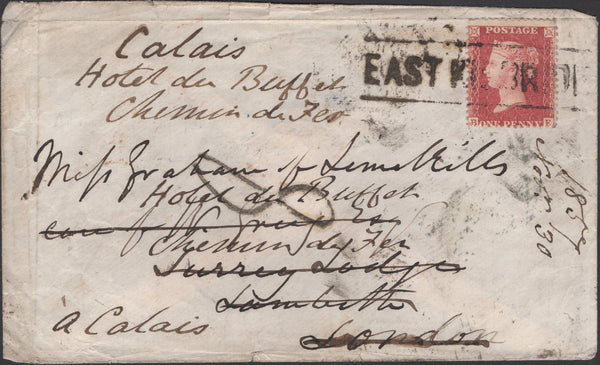 Calais
Hotel du Buffet
Chemin de Fer
POSTAGE
ONE PENNY
EAST
Miss Grahame of Limekilns
Hotel du Buffet
Chemin de Fer
Surrey Lodge
Lambeth
à Calais
London
1857
Nov 30